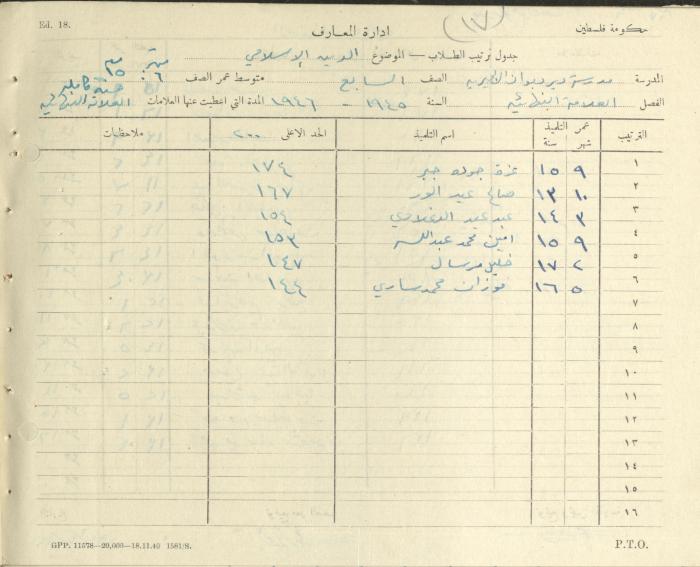 Ed. 18.
(١٧)
حكومة فلسطين
ادارة المعارف
جدول ترتيب الطلاب — الموضوع الدين الإسلامي
المدرسة مدرسة دير ديوان الصف السابع متوسط عمر الصف ١٥ ٦
الفصل العلامة النهائية السنة ١٩٤٥ - ١٩٤٦ المدة التي اعطيت عنها العلامات سنة كاملة العلامة النهائية
الترتيب عمر التلميذ شهر سنة اسم التلميذ الحد الاعلى ٢٠٠ ملاحظات
١ ٩ ١٥ عزة جودة جبر ١٧٤
٢ ١٠ ١٣ صالح عبد ١٦٧
٣ ٣ ١٤ عبد ١٥٤
٤ ٩ ١٥ امين محمد عبدالله ١٥٣
٥ ٢ ١٧ خليل مرسال ١٤٧
٦ ٥ ١٦ فوزان محمد ساري ١٤٤
٧
٨
٩
١٠
١١
١٢
١٣
١٤
١٥
١٦
GPP. 11578—20,000—18.11.40 1581/S.
P.T.O.